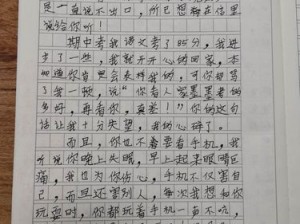 是一直说不出口,所已想趁在信里
说给你听!
期中考我语文考了85分,我进
步了一些,我就开开心心的回家,本
以为你会表扬我的,可你却骂
了我一顿,说“你看人家
多好,再看你,真差!”你的这句
话让我十分失望,我的心碎了。
而且,你也不要看手机,我
听说你晚上失眠,早上起来眼睛
痛,我也为你伤心,手机不仅害自
己,而且还害别人,每次我想和你
玩耍时,你都玩着手机一直不吭,